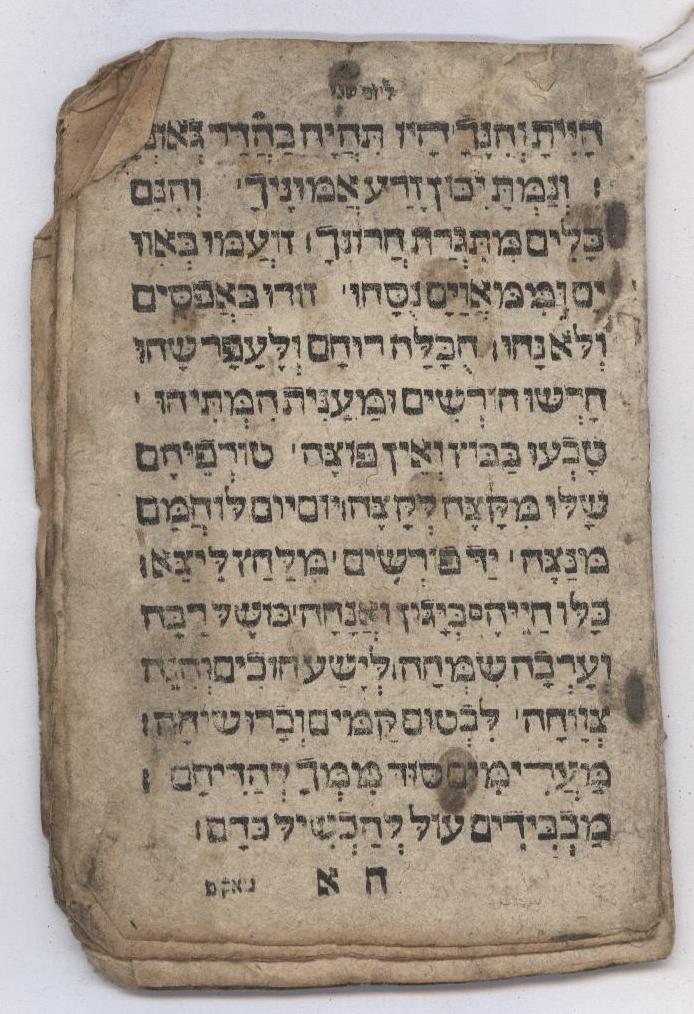 ליום שני
הָיִיתָ וְהִנְּךָ הָיוֹ תִּהְיֶה בַּהֲדַר גְּאוֹנֶ
: וְנַמְתָּ יִכּוֹן זֶרַע אֱמוּנֶיךָ' וְהִנָּם
כָּלִים מִתִּגְרַת חֲרוֹנֶךָ: זוֹעֲמוּ בְּאִוּוּ
יִם וְמִמַּאֲוַיִּם נֻסָּחוּ' זוֹרוּ בַּאֲפָסִים
וְלֹא נָחוּ: כָּלָה רוּחָם וְלֶעָפָר שָׁחוּ
חָרְשׁוּ חוֹרְשִׁים וּמַעֲנִית הִמְתִּיחוּ'
טָבְעוּ בַּבִּיץ וְאֵין פּוֹצֶה' טוֹרְפֵיהֶם
שָׁלוּ מִקָּצֶה לְקָצֶה: יוֹם יוֹם לוֹחֲמָם
מִנַּצֶּה' יַד פּוֹרְשִׂים' מִלַּחַץ לֵיצֵא:
כָּלוּ חַיֵּיהֶם בְּיָגוֹן וַאֲנָחָה:
וְעָרְבָה שִׂמְחָה: לְיֶשַׁע חוֹכִים וְהִנֵּה
צְוָוחָה' לִבְטוֹם קַמִּים וְכָרוּ שִׁיחָה:
מַעֲרִימִים סוֹד מִמְּךָ לְהַדִּיחָם :
מַכְבִּידִים עוֹל לְהַכְשִׁיל כֹּחָם:
ח א